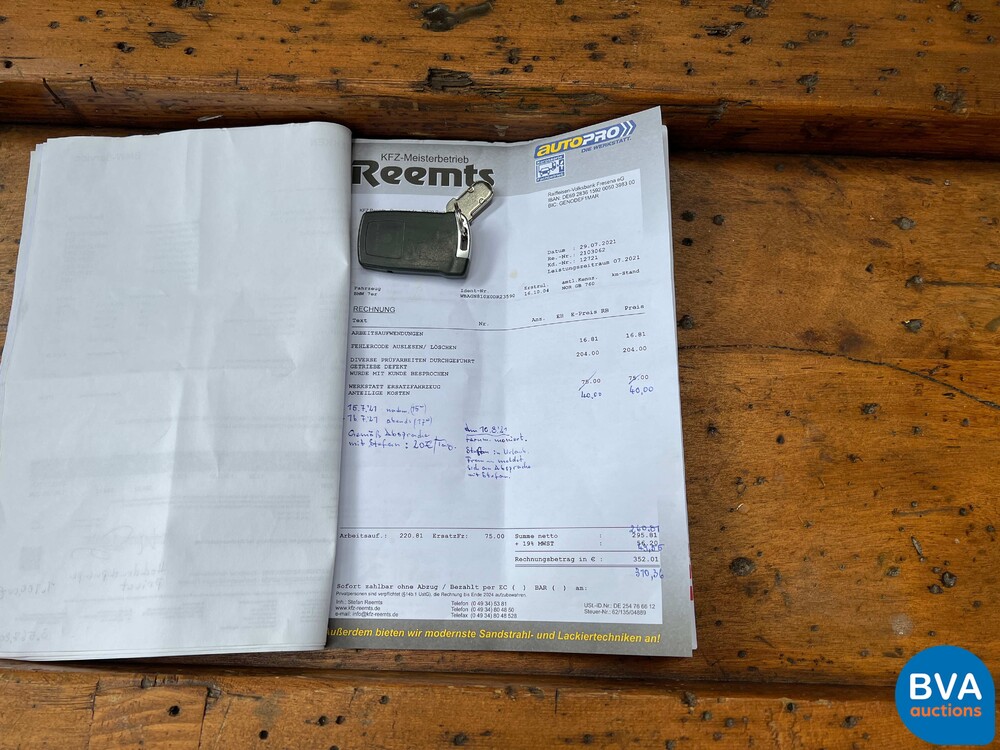 AUTOPRO
DIE WERKSTATT.
KFZ-Meisterbetrieb
Reemts
Raiffeisen-Volksbank Fresena eG
BIC: GENODEF1MAR
Datum : 29.07.2021
Re.-Nr.: 2103062
Kd.-Nr.: 12721
Leistungszeitraum 07.2021
Fahrzeug Ident-Nr. Erstzul. amtl.Kennz. km-Stand
BMW 7er 16.10.04 NOR GB 760
RECHNUNG
Text Nr. Anz. EH E-Preis RB Preis
ARBEITSAUFWENDUNGEN
FEHLERCODE AUSLESEN/ LÖSCHEN 16.81 16.81
DIVERSE PRÜFARBEITEN DURCHGEFÜHRT 204.00 204.00
GETRIEBE DEFEKT
WURDE MIT KUNDE BESPROCHEN
WERKSTATT ERSATZFAHRZEUG 75.00 75.00
ANTEILIGE KOSTEN 40,00 40,00
Gemäß Absprache
mit Stefan: 20€/Tag.
Stefan in Urlaub.
Frau meldet
sich an Absprache
mit Stefan.
260,81
Arbeitsauf.: 220.81 ErsatzFz: 75.00 Summe netto : 295.81
+ 19% MWST : 56.20
Rechnungsbetrag in € : 352.01
310,36
Sofort zahlbar ohne Abzug / Bezahlt per EC ( ) BAR ( ) am:
Privatpersonen sind verpflichtet (§14b.1 UstG), die Rechnung bis Ende 2024 aufzubewahren.
Inh.: Stefan Reemts Telefon: (0 49 34) 53 81 USt.-ID.Nr.: DE 254 76 68 12
www.kfz-reemts.de Telefon: (0 49 34) 80 48 50 Steuer-Nr.: 62/135/04889
e-mail: info@kfz-reemts.de Telefax: (0 49 34) 80 48 528
Außerdem bieten wir modernste Sandstrahl- und Lackiertechniken an!
BVA
auctions